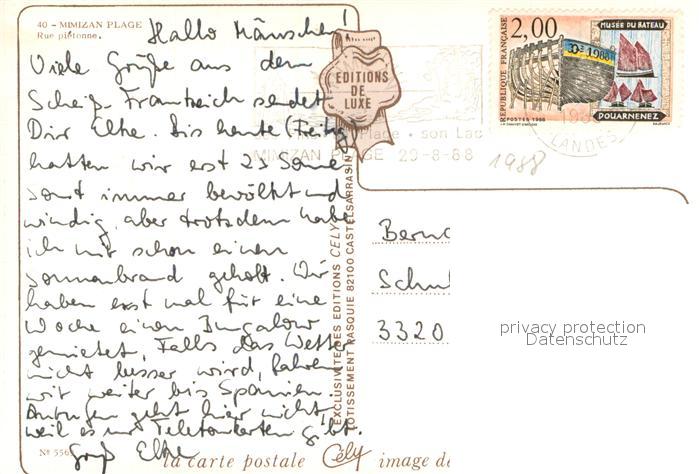 40 - MIMIZAN PLAGE
Rue piétonne.
Hallo Mäuschen!
Viele Grüße aus dem
Scheiß-Frankreich sendet
Dir Elke. Bis heute (Freitag)
hatten wir erst 2 Sonne
sonst immer bewölkt und
windig, aber trotzdem habe
ich mir schon einen
Sonnenbrand geholt. Wir
haben erst mal für eine
Woche einen Bungalow
gemietet. Falls das Wetter
nicht besser wird, fahren
wir weiter bis Spanien.
Anrufen geht hier nicht,
weil es nur Telefonkarten gibt.
Gruß Elke
Nº 556
EDITIONS
DE
LUXE
Plage • son Lac
MIMIZAN PLAGE 29-8-88
LANDES
1988
REPUBLIQUE FRANÇAISE
2,00
MUSÉE DU BATEAU
DZ 1988
POSTES 1988
DOUARNENEZ
EXCLUSIVITÉ DES EDITIONS CELY
LOTISSEMENT PASQUIE 82100 CASTELSARRASIN
Bernd
Schul
3320
privacy protection
Datenschutz
la carte postale Cély image de